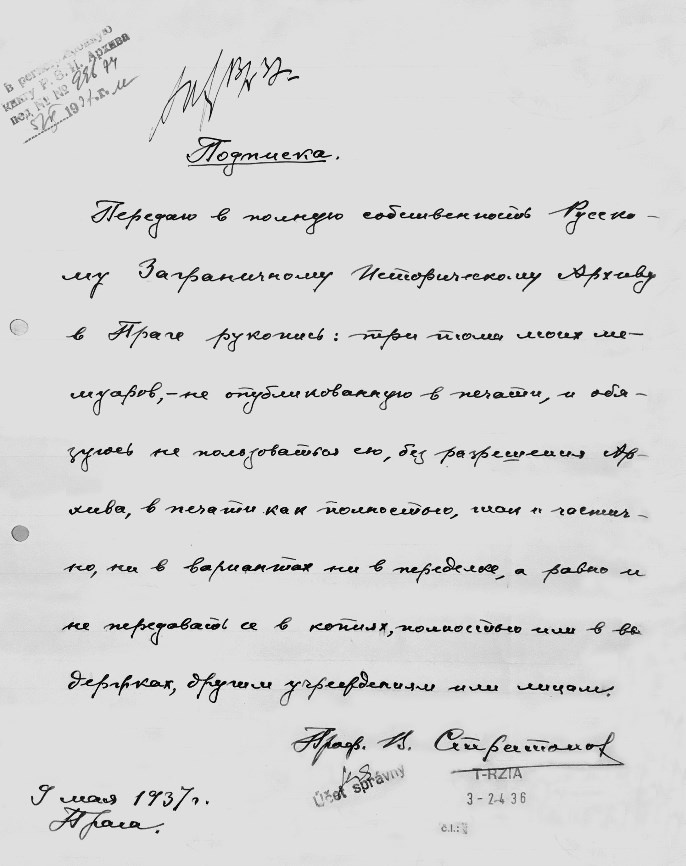 В регистрационную
книгу Р. З. И. Архива
под № №
193 г.
Подписка.
Передаю в полную собственность Русско-
му Заграничному Историческому Архиву
в Праге рукопись: три тома моих ме-
муаров,-не опубликованную в печати, и обя-
зуюсь не пользоваться ею, без разрешения Ар-
хива, в печати как полностью, так и частич-
но, ни в вариантах ни в переделке, а равно и
не передавать ее в копиях, полностью или в вы-
держках, другим учреждениям или лицам.
Проф. В. Стратонов
Účet správny
T-RZIA
3-2436
č.l.:
9 мая 1937 г.
Прага.